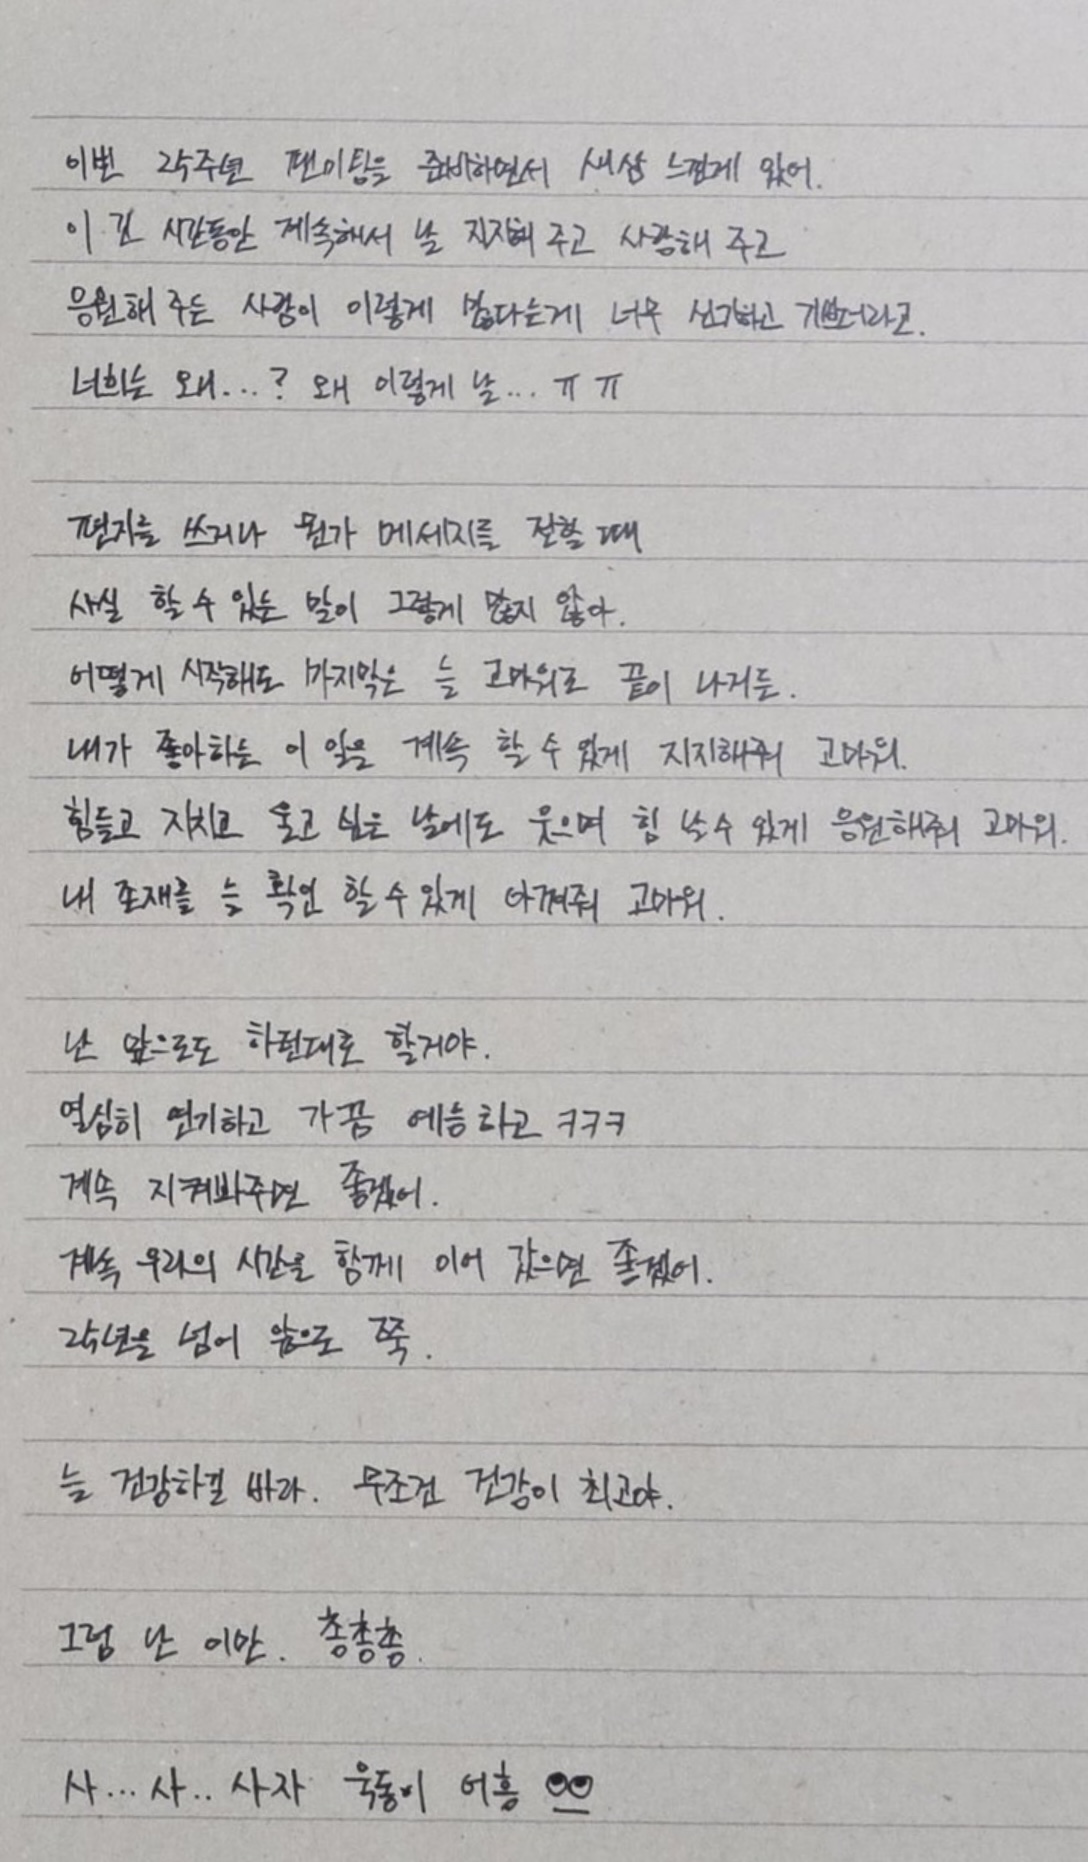 이번 25주년 팬미팅을 준비하면서 새삼 느낀게 있어.
이 긴 시간동안 계속해서 날 지지해 주고 사랑해 주고
응원해 주는 사람이 이렇게 많다는게 너무 신기하고 기쁘더라고.
너희는 왜...? 왜 이렇게 날... ㅠㅠ
편지를 쓰거나 뭔가 메세지를 전할 때
사실 할 수 있는 말이 그렇게 많지 않아.
어떻게 시작해도 마지막은 늘 고마워로 끝이 나거든.
내가 좋아하는 이 일을 계속 할 수 있게 지지해줘 고마워.
힘들고 지치고 울고 싶은 날에도 웃으며 힘 낼 수 있게 응원해줘 고마워.
내 존재를 늘 확인 할 수 있게 아껴줘 고마워.
난 앞으로도 하던대로 할거야.
열심히 연기하고 가끔 예능하고 ㅋㅋㅋ
계속 지켜봐주면 좋겠어.
계속 우리의 시간을 함께 이어 갔으면 좋겠어.
25년을 넘어 앞으로 쭉.
늘 건강하길 바라. 무조건 건강이 최고야.
그럼 난 이만. 총총총.
사...사.. 사자 욱동이 어흥